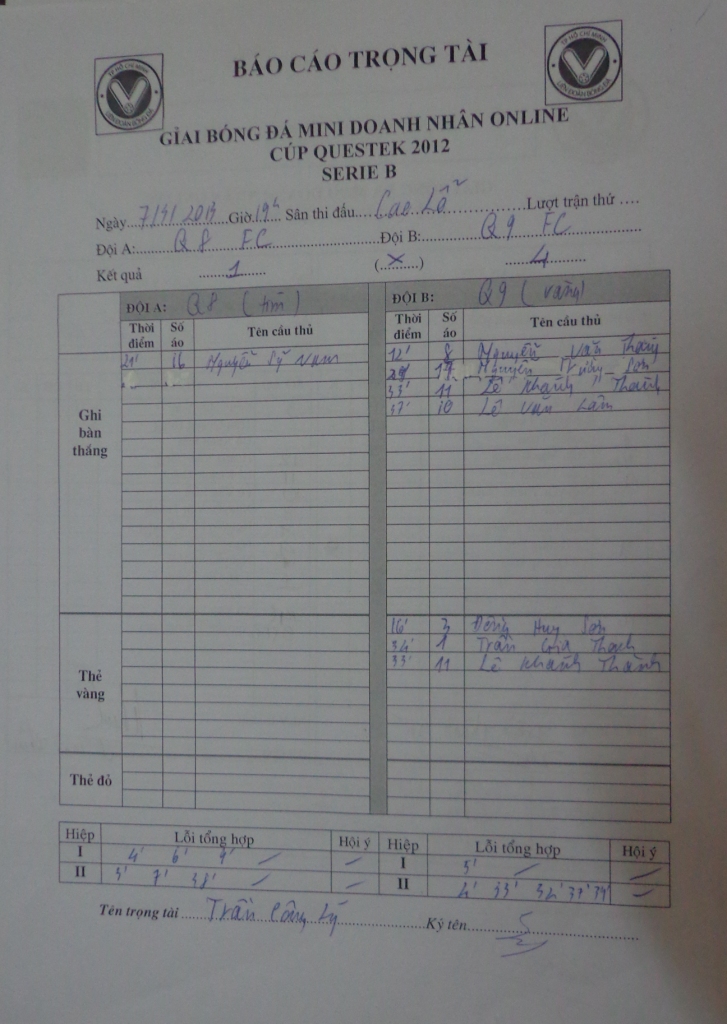 TP HỒ CHÍ MINH
LIÊN ĐOÀN BÓNG ĐÁ
BÁO CÁO TRỌNG TÀI
TP HỒ CHÍ MINH
LIÊN ĐOÀN BÓNG ĐÁ
GIẢI BÓNG ĐÁ MINI DOANH NHÂN ONLINE
CÚP QUESTEK 2012
SERIE B
Ngày 7/4/2013 Giờ 19h Sân thi đấu Cao Lỗ Lượt trận thứ ....
Đội A: Q8 FC Đội B: Q9 FC
Kết quả 1 (x) 4
ĐỘI A: Q8 (tím) ĐỘI B: Q9 (vàng)
Thời điểm Số áo Tên cầu thủ Thời điểm Số áo Tên cầu thủ
Ghi bàn thắng
21' 16 Nguyễn Sỹ Nam 12' 8 Nguyễn Văn
29' 17 Nguyễn Sơn
33' 11 Lê Khánh Thành
37' 10 Lê Văn Lâm
Thẻ vàng
16' 3 Đồng Huy Sơn
34' 1 Trần Gia Thạch
33' 11 Lê Khánh Thành
Thẻ đỏ
Hiệp Lỗi tổng hợp Hội ý Hiệp Lỗi tổng hợp Hội ý
I 4' 6' 9' / – I 5' / –
II 3' 7' 38' / – II 4' 33' 34' 37' 39' –
Tên trọng tài Trần Công Lý Ký tên